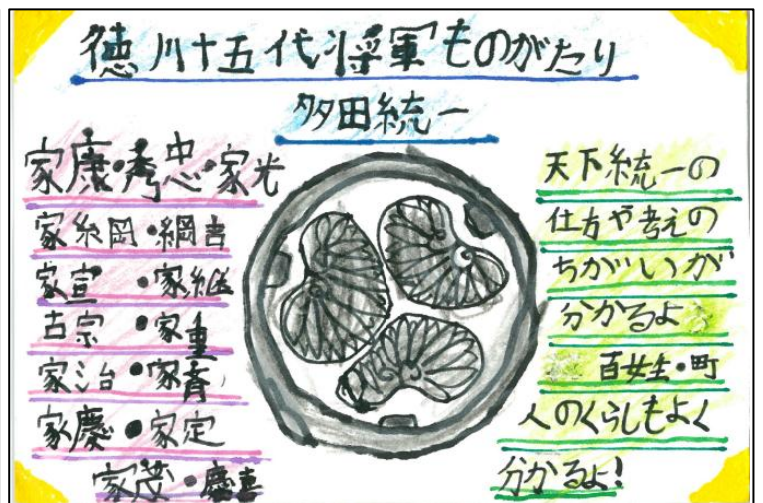 徳川十五代将軍ものがたり
多田統一
家康・秀忠・家光
家綱・綱吉
家宣・家継
吉宗・家重
家治・家斉
家慶・家定
家茂・慶喜
天下統一の
仕方や考えの
ちがいが
分かるよ
百姓・町
人のくらしもよく
分かるよ!